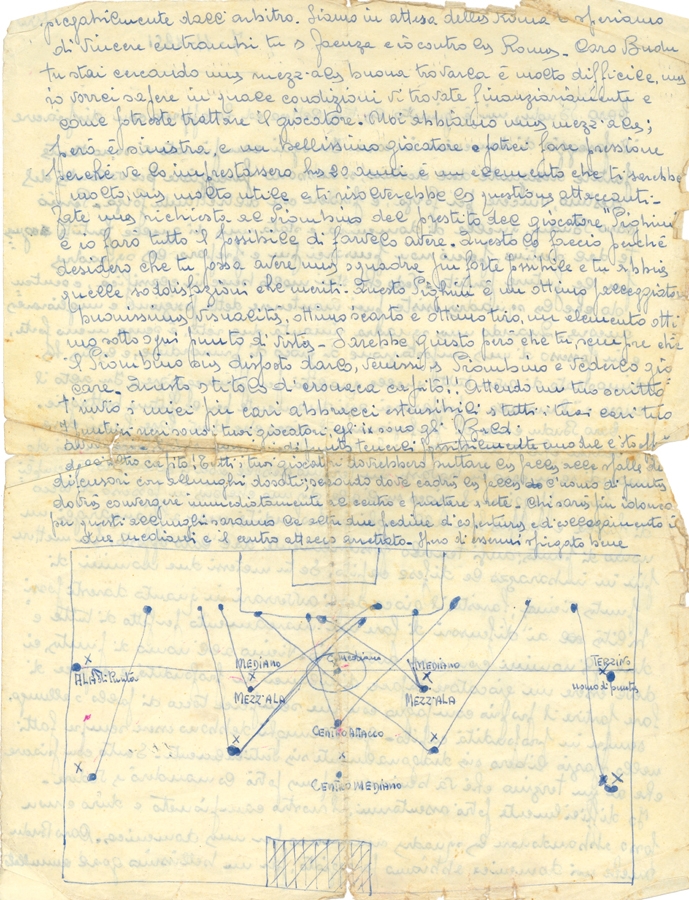 piegabilmente dall'arbitro. Siamo in attesa della Roma e speriamo
di vincere entrambi tu a Faenza e io contro la Roma - Caro Bruon
tu stai cercando una mezz-ala buona trovarla è molto difficile, ma
io vorrei sapere in quale condizioni vi trovate finanziariamente e
come potreste trattare il giocatore. Noi abbiamo una mezz-ala;
però è sinistra, è un bellissimo giocatore e potrei fare pressione
perché ve lo imprestassero ha 20 anni è un elemento che ti sarebbe
molto, ma molto utile, e ti risolverebbe la questione attaccanti -
Fate una richiesta al Piombino del prestito del giocatore "Pighini"
e io farò tutto il possibile di farvelo avere. Questo lo faccio perché
desidero che tu possa avere una squadra più forte possibile e tu abbia
quelle soddisfazioni che meriti. Questo Pighini è un ottimo palleggiatore
buonissima visualità, ottimo scarto e ottimo tiro, un elemento otti
mo sotto ogni punto di vista - Sarebbe questo però che tu, sempre che
il Piombino sia disposto darlo, venissi a Piombino a vederlo gio
care. Questo a titolo di cronaca capito!! Attendo un tuo scritto
t'invio i miei più cari abbracci estensibili a tutti i tuoi cari tuo
I puntini neri sono i tuoi giocatori gli x sono gli
capito! Tutti i tuoi giocatori dovrebbero buttare la palla alle spalle dei
difensori con allunghi dosati; secondo dove cadrà la palla l'uomo di punta
dovrà convergere immediatamente al centro e puntare a rete - Chi sarà più idoneo
per questi allunghi saranno le altre due pedine d'copertura e di collegamento i
due mediani e il centro attacco arretrato - Spero di essermi spiegato bene
x
MEDIANO
C. mediano
MEDIANO
x
TERZINO
x
ALA di Punta
MEZZ'ALA
MEZZ'ALA
uomo di punta
CENTRO ATTACCO
x
x
x
x
x x
CENTRO MEDIANO